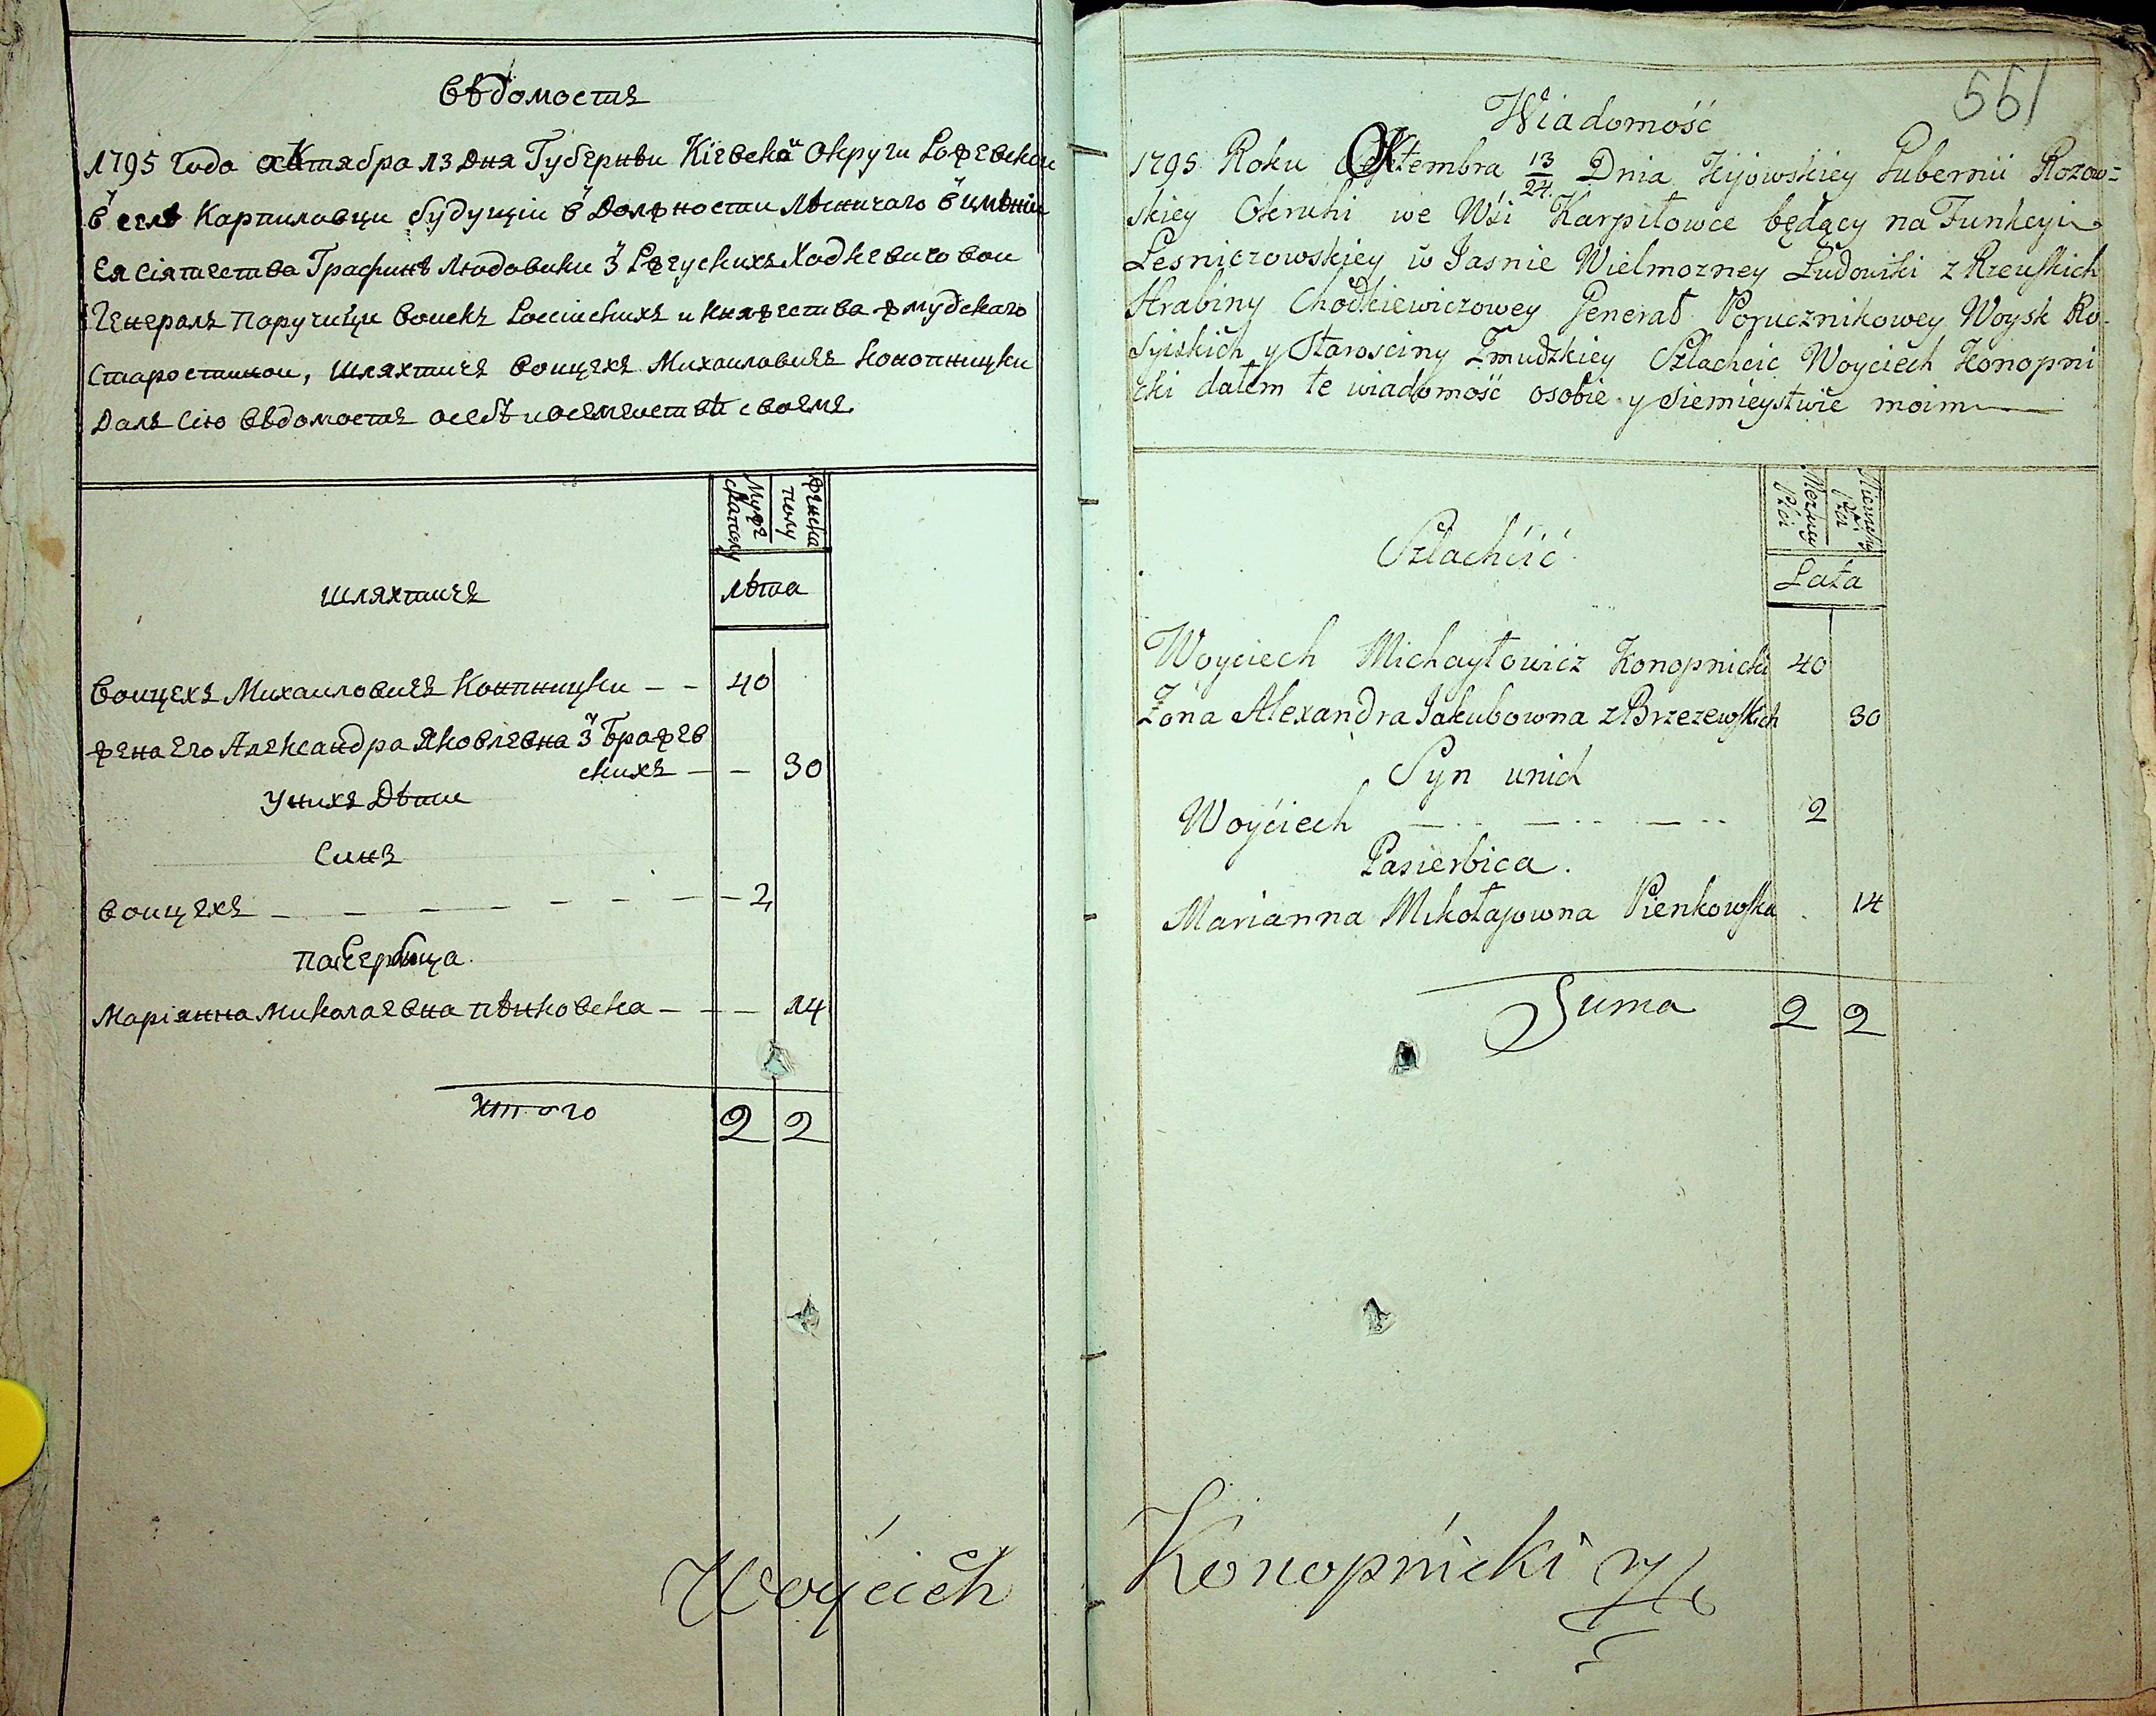 Вѣдомостъ
1795 Года октября 13 Дня Губернѣи Кіевской Округи Рожевской
в селѣ Карпиловци будущіи в Должности Лѣсничаго в имѣніи
Ея Сіятества Графинѣ Людовики З Ржеускихъ Ходкевичовои
Генералъ Поручици Воискъ Россискихъ и Княжества Жмудскаго
Старостинои, Шляхтичъ Воицехъ Михаиловичъ Конопницки
Далъ Сію Вѣдомостъ осебѣ иосемействѣ своемъ
Мужескаполу
Женска полу
Лѣта
Шляхтичъ
Воицехъ Михаиловичъ Конпницки - - 40
Жена Его Александра Яковлевна З Бражев
скихъ - - 30
Унихъ Дѣти
Синъ
Воицехъ - - - - - - - - 2
Пасербица.
Маріянна Миколаевна Пѣнковска - - - 14
Итого 2 2
Woyciech
551
Wiadomość
1795 Roku Oktembra 13/24 Dnia Kijowskiey Gubernii Rozow=
skiey Okruhi we Wśi Karpiłowce będący na Funkcyi
Lesniczowskiey w Jasnie Wielmozney Ludowiki z Rzewskich
Hrabiny Chodkiewiczowey Generał Porucznikowey Woysk Ro-
syiskich y Starosciny Zmudzkiey Szlachcic Woyciech Konopni
cki dałem te wiadomość osobie y siemieystwie moim
Męzkiey Płci
Niewiasty Płci
Lata
Szlachćić
Woyciech Michayłowicz Konopnicki 40
Żona Alexandra Jakubowna z Brzezewskich 30
Syn unich
Woyćiech - - - 2
Pasierbica.
Marianna Mikołajowna Pienkowska 14
Suma 2 2
Konopnicki